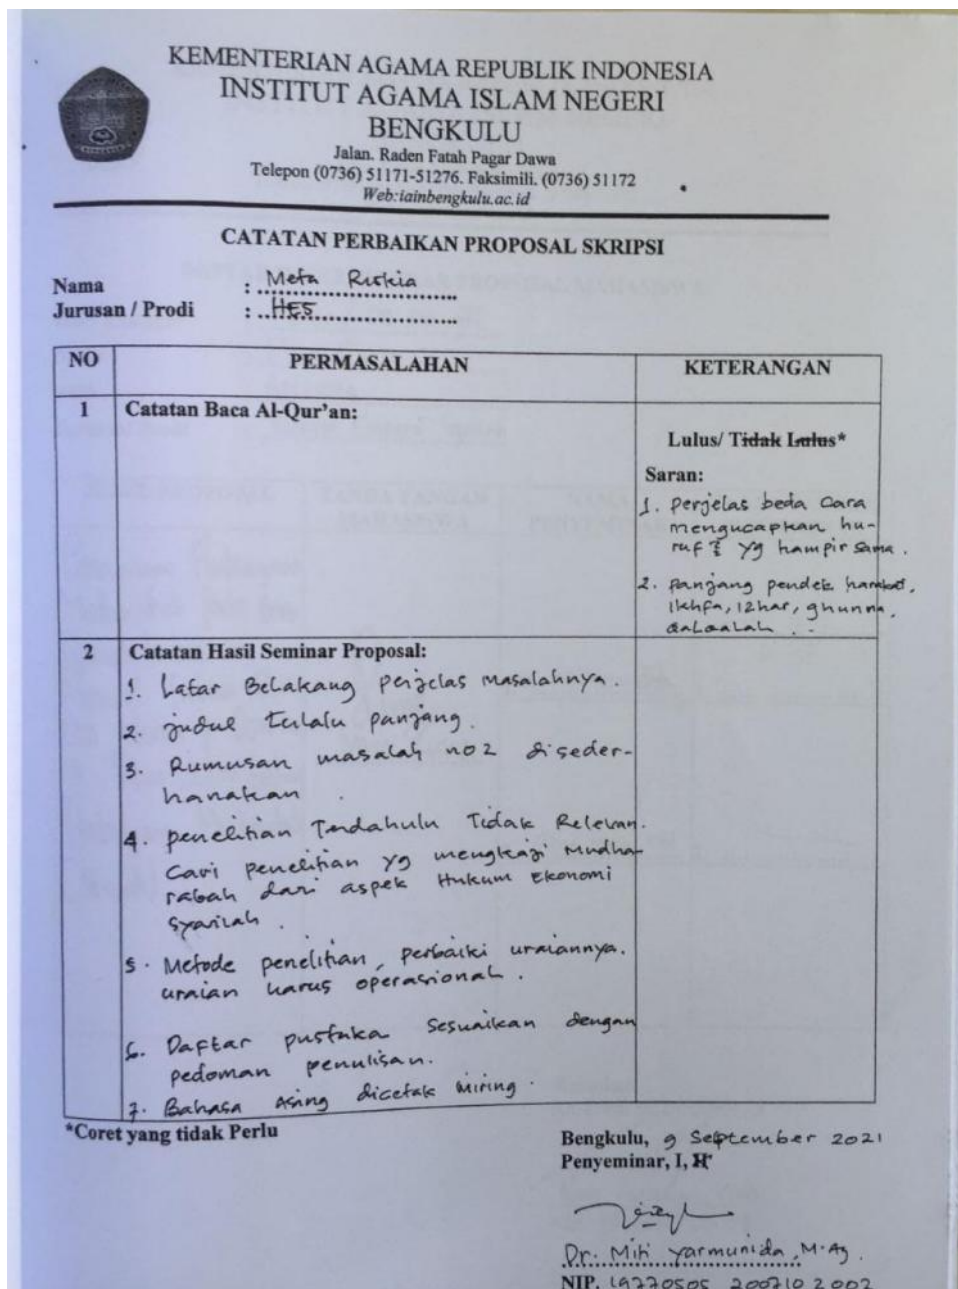 KEMENTERIAN AGAMA REPUBLIK INDONESIA
INSTITUT AGAMA ISLAM NEGERI
BENGKULU
Jalan. Raden Fatah Pagar Dawa
Telepon (0736) 51171-51276. Faksimili. (0736) 51172
Web:iainbengkulu.ac.id
CATATAN PERBAIKAN PROPOSAL SKRIPSI
Nama : Meta Riskia
Jurusan / Prodi : HES
NO PERMASALAHAN KETERANGAN
1 Catatan Baca Al-Qur'an:
Lulus/ Tidak Lulus*
Saran:
1. Perjelas beda cara
mengucapkan hu-
ruf2 yg hampir sama.
2. Panjang pendek harakat,
Ikhfa, Izhar, ghunna,
qalqalah ..
2 Catatan Hasil Seminar Proposal:
1. Latar Belakang perjelas masalahnya.
2. judul terlalu panjang.
3. Rumusan masalah no 2 diseder-
hanakan.
4. penelitian Terdahulu Tidak Relevan.
Cari penelitian yg mengkaji Mudha-
rabah dari aspek Hukum Ekonomi
Syariah.
5. Metode penelitian, perbaiki uraiannya.
uraian harus operasional.
6. Daftar pustaka sesuaikan dengan
pedoman penulisan.
7. Bahasa Asing dicetak miring.
*Coret yang tidak Perlu
Bengkulu, 9 September 2021
Penyeminar, I, II
Dr. Miti Yarmunida, M.Ag.
NIP. 19770505 200710 2 002